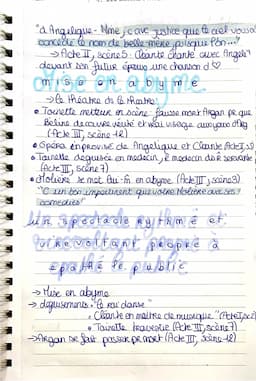 "à Angelique - Mme, c avc justice que le ciel vous a
concédé le nom de belle-mère puisque l'on..."
→ Acte II, scène 5 Cléante chante avec Angélique
devant son futur époux une chanson d♡
Mise en abyme
mise en abyme
→ le théâtre ds le théâtre
• Toinette metteur en scène fausse mort Argan pr que
Béline découvre vérité et vrai visage
(Acte III, scène 12)
• Opéra improvisé de Angélique et Cléante (Acte II, s5)
• Toinette déguisée en médecin, è médecin ds è servante
(Acte III, scène 7)
• Molière se met lui-m en abyme (Acte III, scène 3)
"C'un bon impertinent que votre Molière avec ses
comédies"
Un spectacle rythmé et
virevoltant propre à
épaté le public
→ Mise en abyme
→ déguisements • le roi danse"
• Cléante en maître de musique "(Acte II, sc2)
• Toinette travestie (Acte III, scène 7)
→ Argan se fait passer pr mort (Acte III, scène 12)